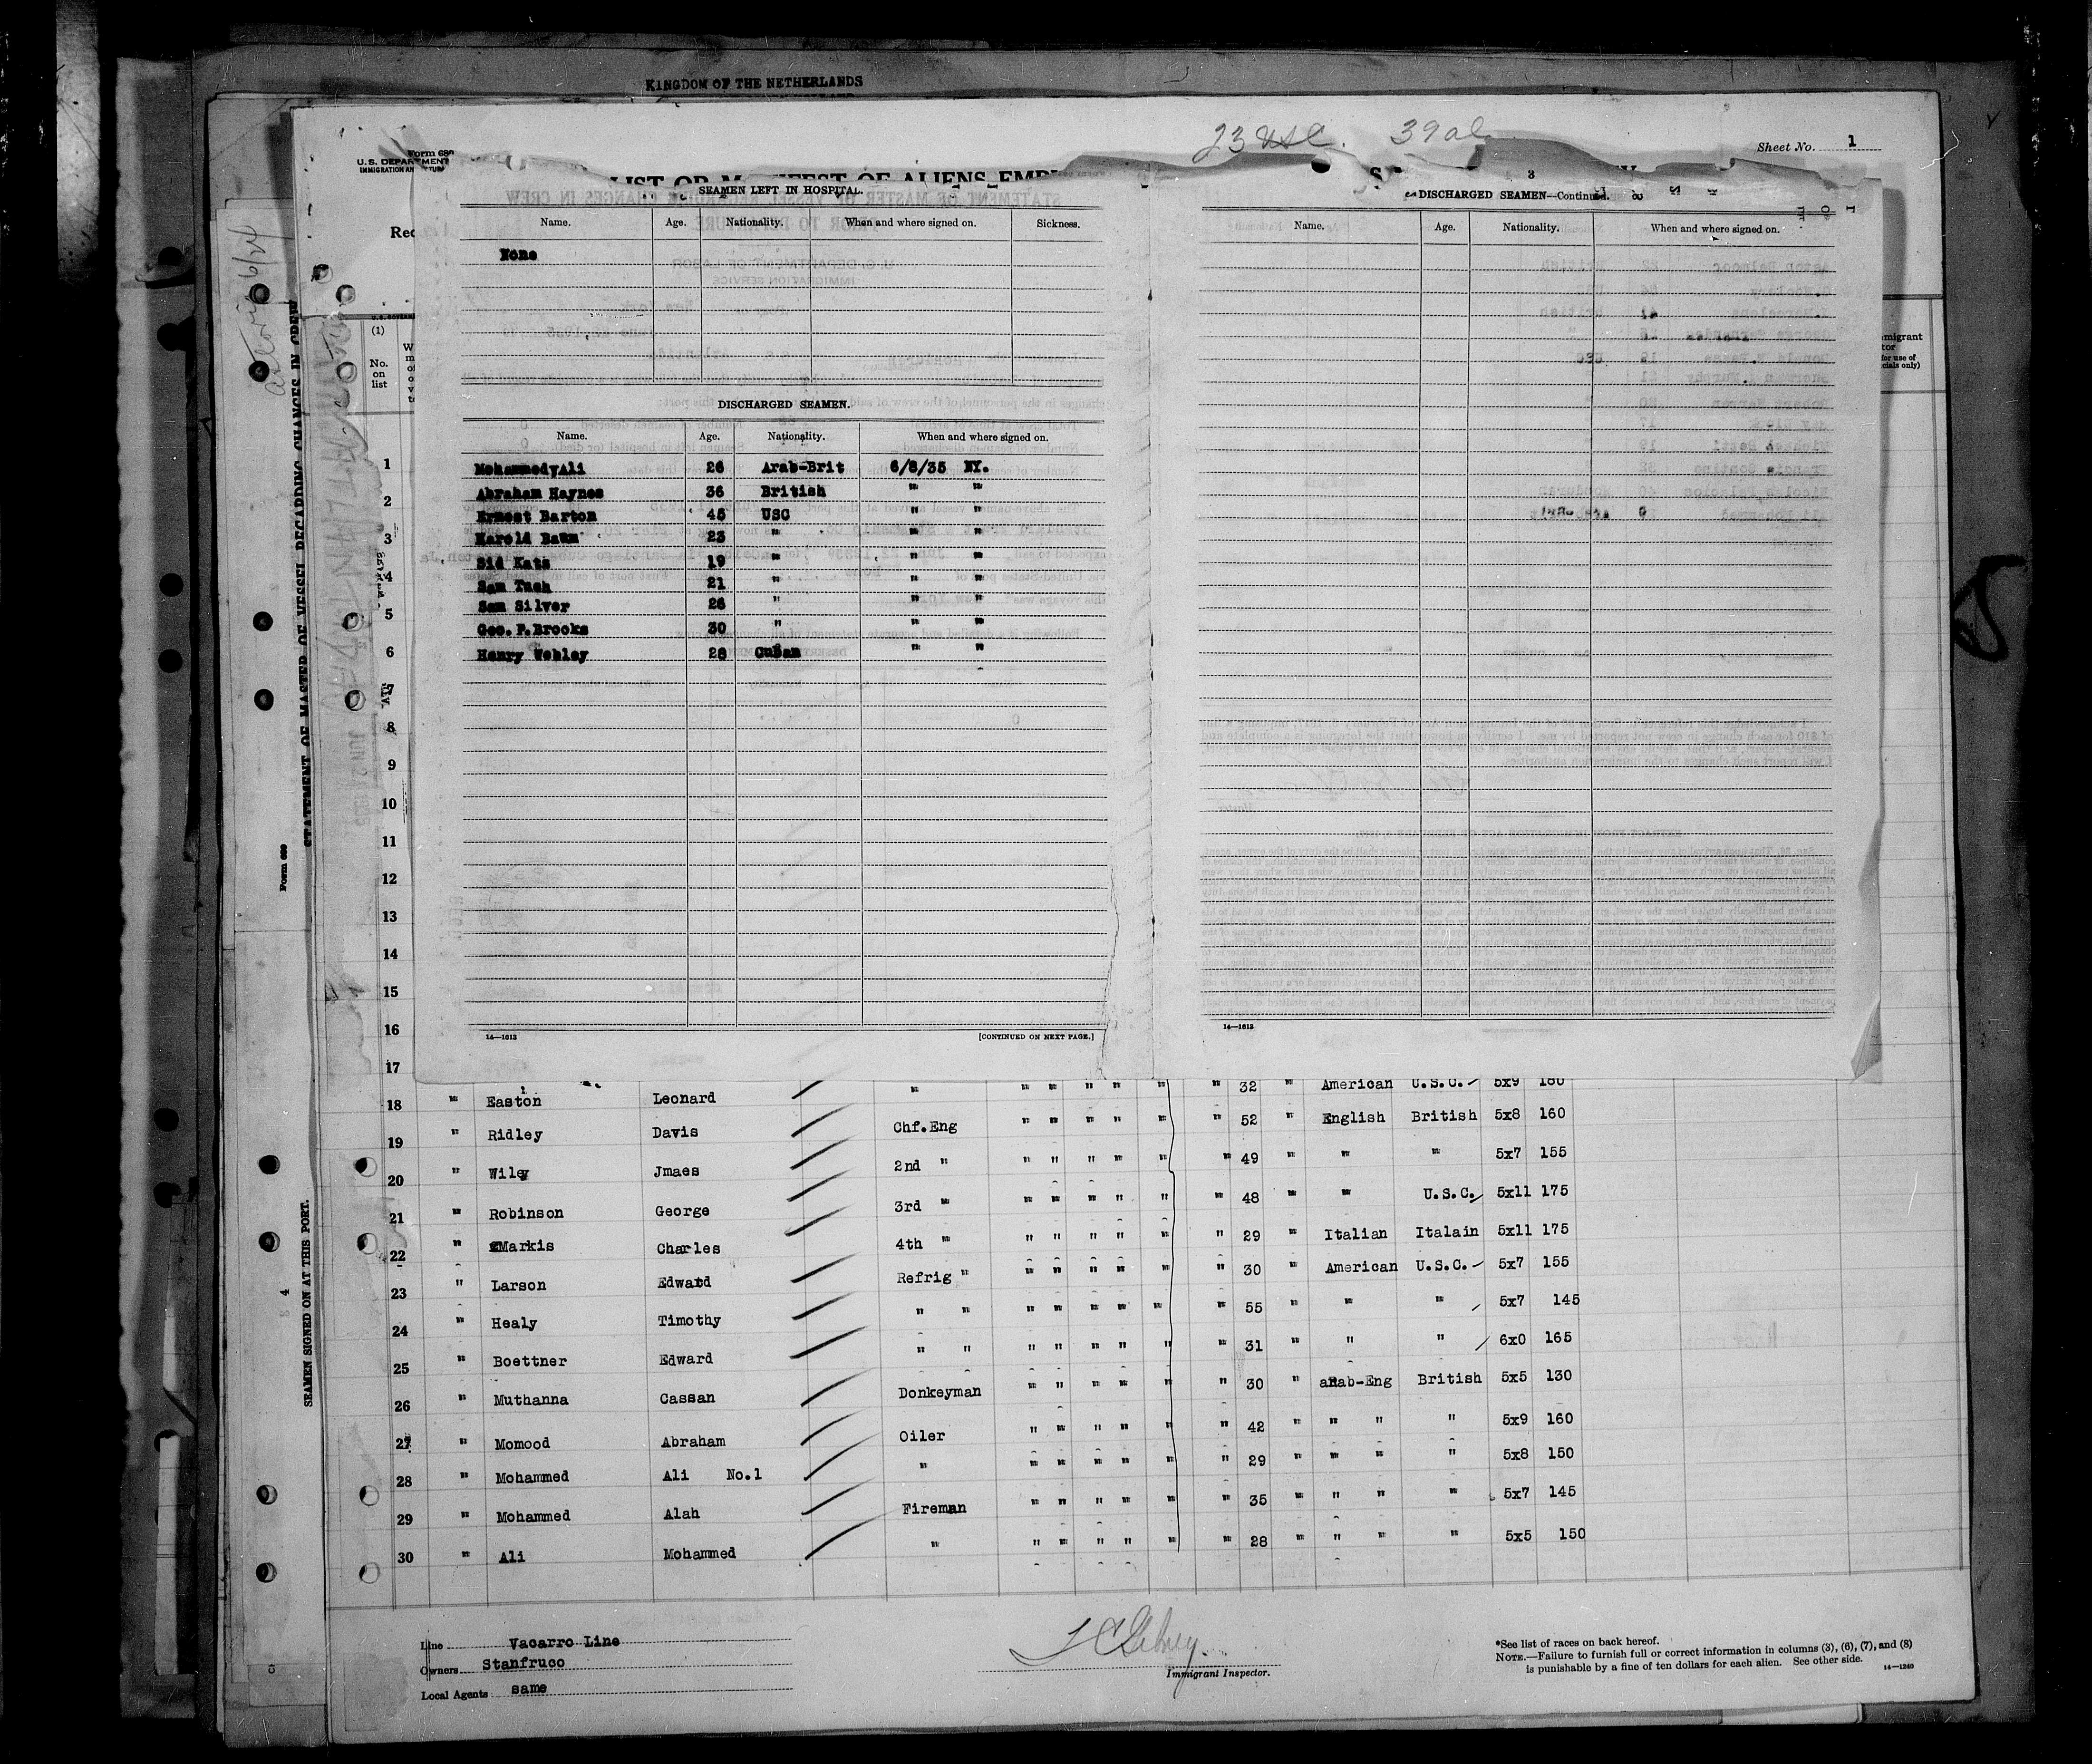 KINGDOM OF THE NETHERLANDS
23 USC. 39 al
Sheet No. 1
Form 680
U.S. DEPARTMENT
IMMIGRATION
LIST OR MANIFEST OF ALIENS EMPL
SEAMEN LEFT IN HOSPITAL.
Name. Age. Nationality. When and where signed on. Sickness.
None
DISCHARGED SEAMEN.
Name. Age. Nationality. When and where signed on.
MohammedyAli 26 Arab-Brit 6/8/35 NY.
Abraham Haynes 36 British " "
Ernest Barton 45 USC " "
Harold Baum 23 " " "
Sid Katz 19 " " "
Sam Tuch 21 " " "
Sam Silver 26 " " "
Geo. P. Brooks 30 " " "
Henry Webley 28 Cuban " "
14—1613
[CONTINUED ON NEXT PAGE.]
3
DISCHARGED SEAMEN—Continued.
Name. Age. Nationality. When and where signed on.
14—1613
(1)
No. on list
1
2
3
4
5
6
7
8
9
10
11
12
13
14
15
16
17
" " " " " " " 32 " American U.S.C. 5x9 180
18 " Easton Leonard
Chf.Eng " " " " " " 52 " English British 5x8 160
19 " Ridley Davis
2nd " " " " " " " 49 " " " 5x7 155
20 " Wiley Jmaes
3rd " " " " " " " 48 " " U.S.C. 5x11 175
21 " Robinson George
4th " " " " " " " 29 " Italian Italain 5x11 175
22 " Markis Charles
Refrig " " " " " " " 30 " American U.S.C. 5x7 155
23 " Larson Edward
" " " " " " " " 55 " " " 5x7 145
24 " Healy Timothy
" " " " " " " " 31 " " " 6x0 165
25 " Boettner Edward
Donkeyman " " " " " " 30 " arab-Eng British 5x5 130
26 " Muthanna Cassan
Oiler " " " " " " 42 " " " " 5x9 160
27 " Momood Abraham
" " " " " " " 29 " " " " 5x8 150
28 " Mohammed Ali No.1
Fireman " " " " " " 35 " " " " 5x7 145
29 " Mohammed Alah
" " " " " " " 28 " " " " 5x5 150
30 " Ali Mohammed
Line Vacarro Line
Owners Stanfruco
Local Agents same
Immigrant Inspector.
*See list of races on back hereof.
NOTE.—Failure to furnish full or correct information in columns (3), (6), (7), and (8)
is punishable by a fine of ten dollars for each alien. See other side.
14—1240
STATEMENT OF MASTER OF VESSEL REGARDING CHANGES IN CREW
Form 689
4
SEAMEN SIGNED ON AT THIS PORT.